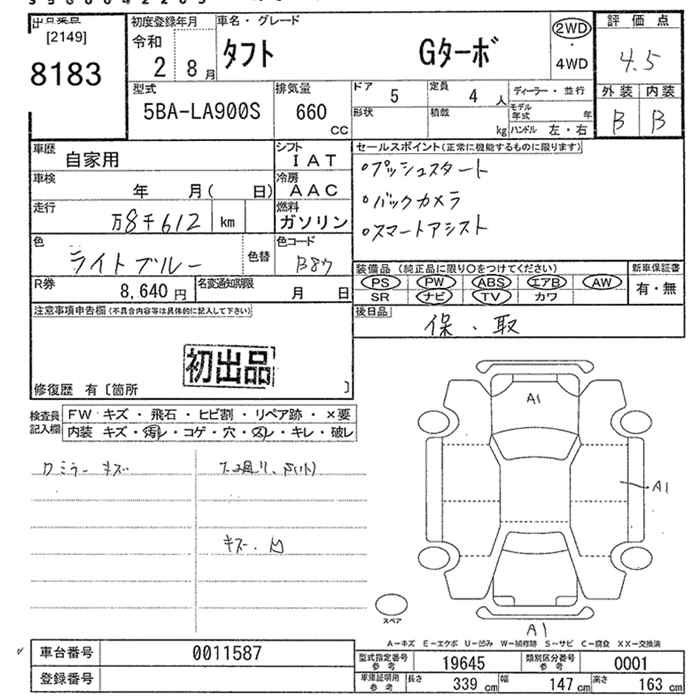 出品業店
[2149]
8183
初度登録年月
令和
2 8月
車名・グレード
タフト Gターボ
2WD
・
4WD
評価点
4.5
外装 内装
B B
型式
5BA-LA900S
排気量
660
cc
ドア 5
定員 4 人
形状
積載 kg
ディーラー・並行
モデル年式 年
ハンドル 左・右
車歴 自家用
シフト IAT
車検 年 月( 日)
冷房 AAC
走行 万8千612 km
燃料 ガソリン
色 ライトブルー 色替
色コード B87
R券 8,640円
名変通知期限 月 日
セールスポイント(正常に機能するものに限ります)
○プッシュスタート
○バックカメラ
○スマートアシスト
装備品(純正品に限り○をつけてください)
PS PW ABS エアB AW
SR ナビ TV カワ
新車保証書
有・無
後日品
保、取
注意事項申告欄(不具合内容等は具体的に記入して下さい)
初出品
修復歴 有〔箇所 〕
検査員記入欄
FW キズ・飛石・ヒビ割・リペア跡・×要
内装 キズ・汚レ・コゲ・穴・スレ・キレ・破レ
ワミラー キズ
キズ、凹
A1
A1
A1
スペア
A-キズ E-エクボ U-凹み W-補修跡 S-サビ C-腐食 XX-交換済
車台番号 0011587
登録番号
型式指定番号参考 19645
類別区分番号参考 0001
車庫証明用参考 長さ 339cm 幅 147cm 高さ 163cm